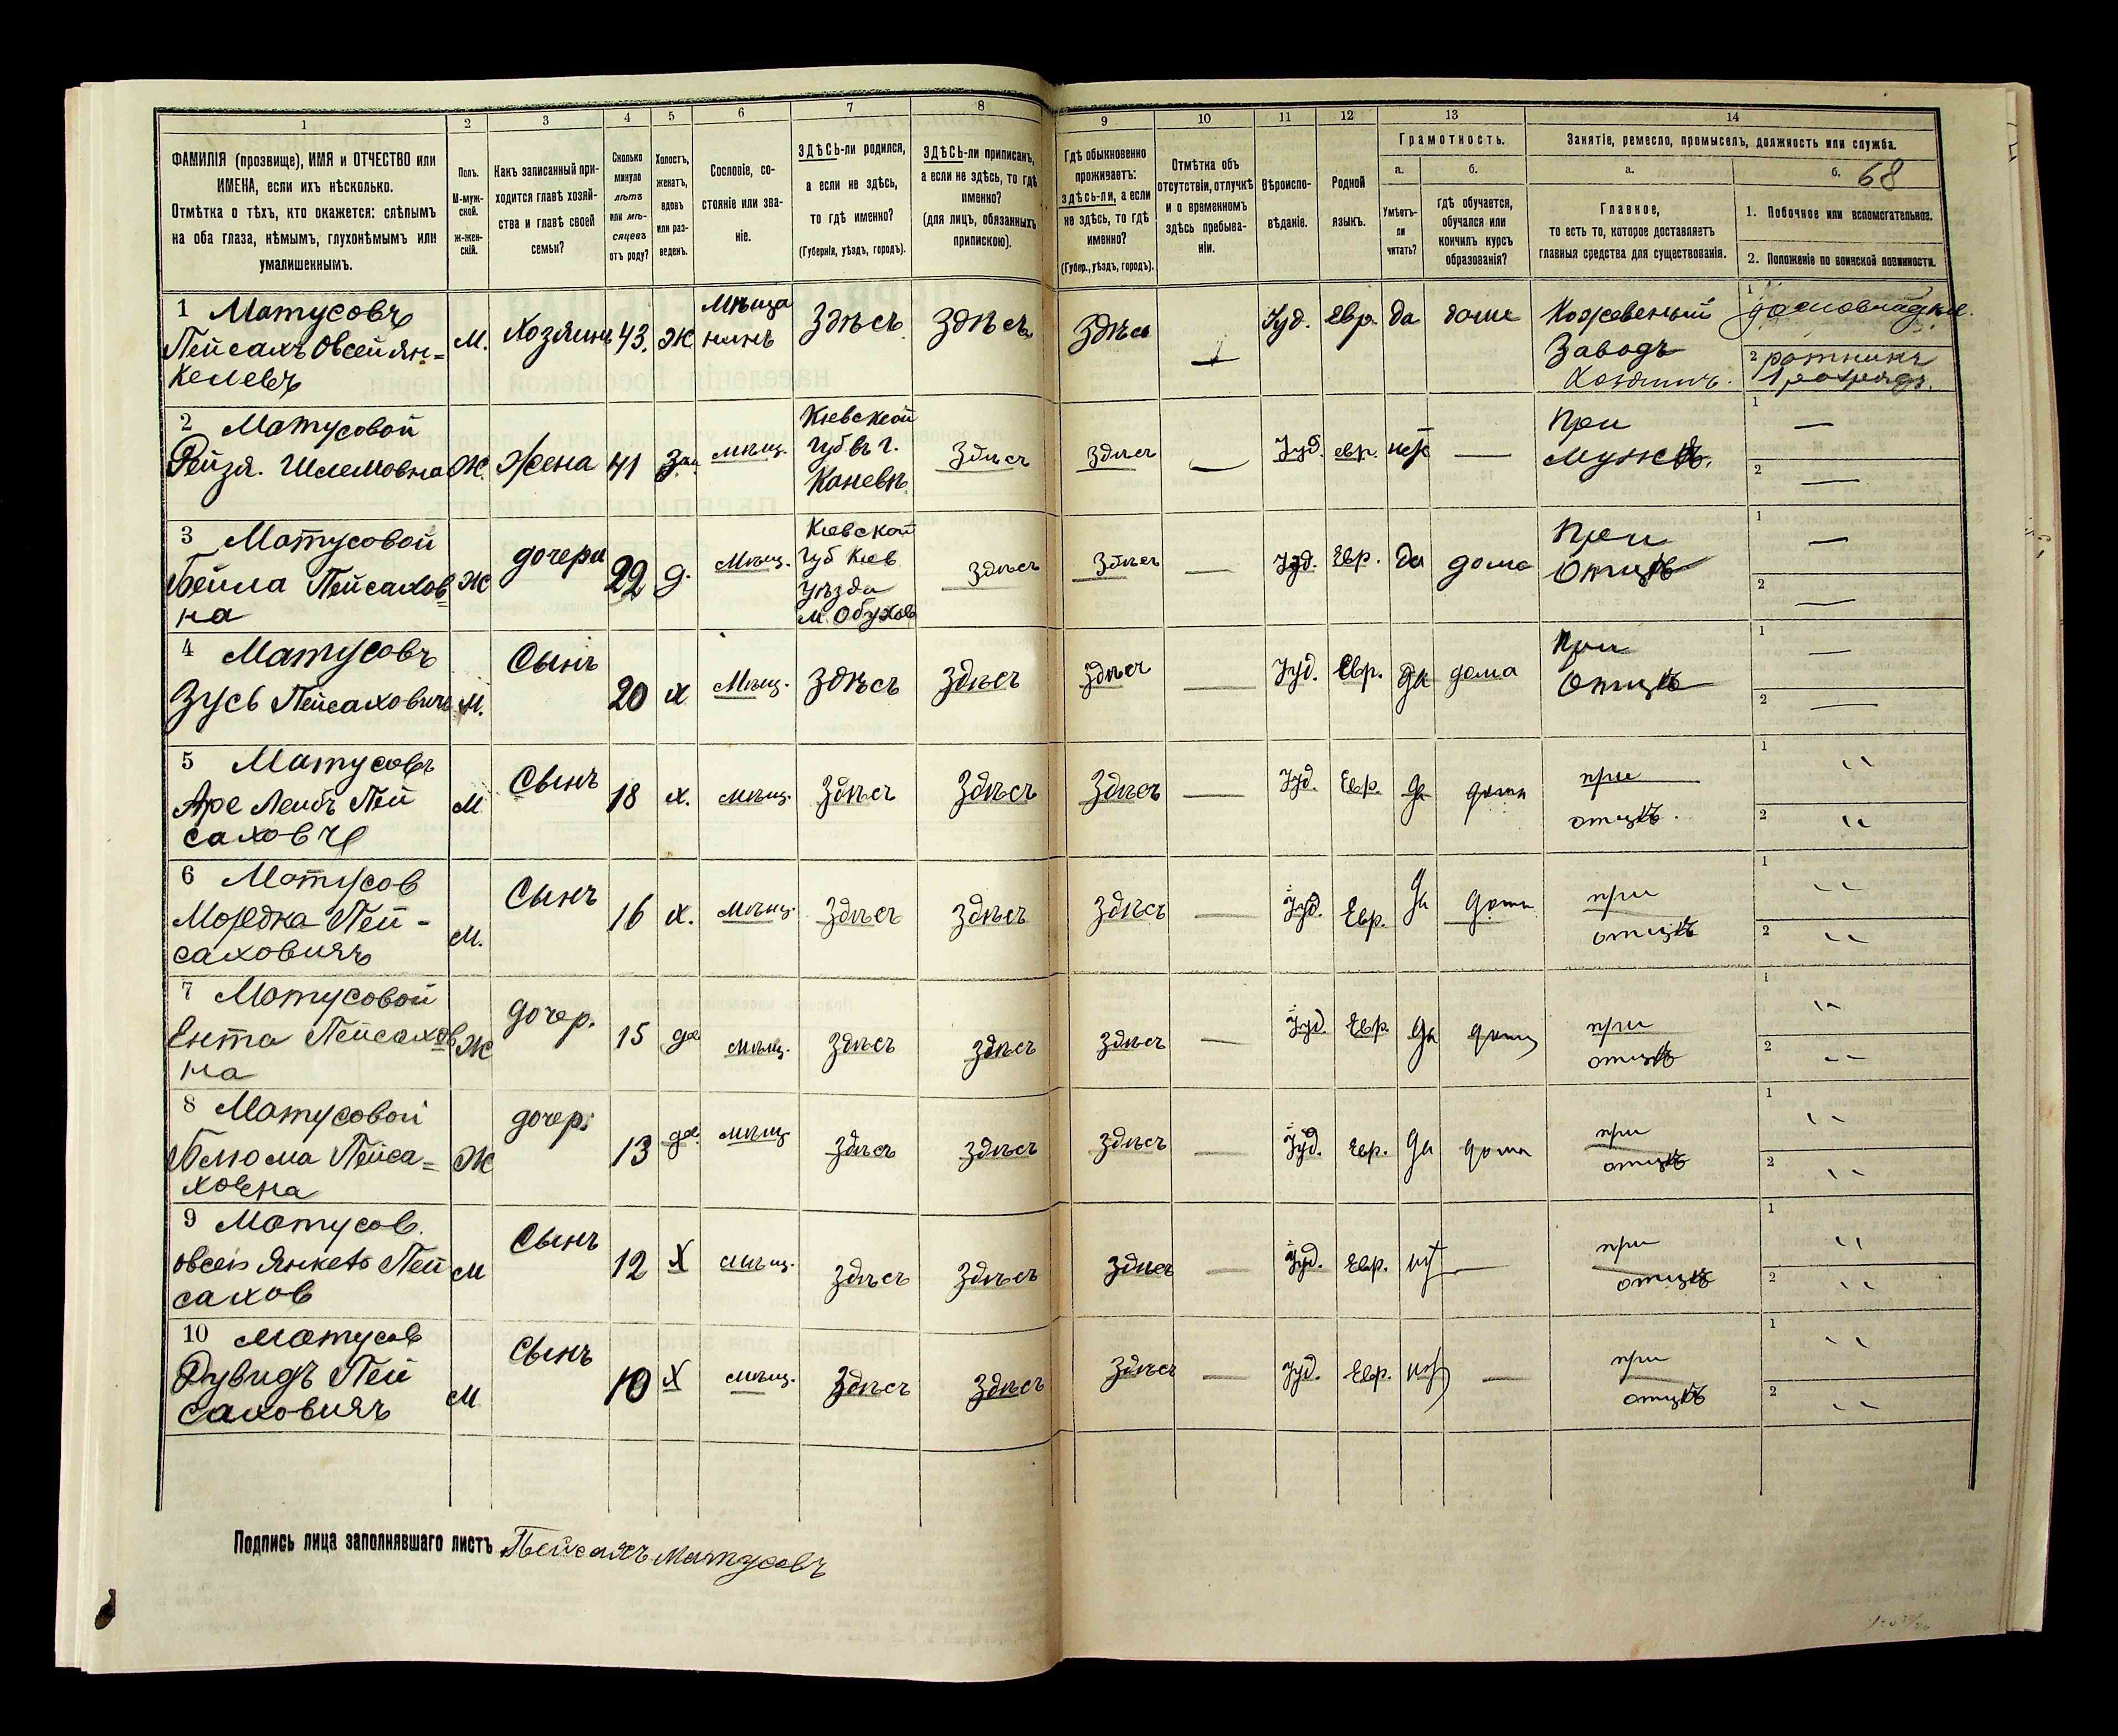 1
2
3
4
5
6
7
8
9
10
11
12
13
14
ФАМИЛІЯ (прозвище), ИМЯ и ОТЧЕСТВО или
ИМЕНА, если ихъ нѣсколько.
Отмѣтка о тѣхъ, кто окажется: слѣпымъ
на оба глаза, нѣмымъ, глухонѣмымъ или
умалишеннымъ.
Полъ.
М-муж-
ской.
Ж-жен-
скій.
Какъ записанный при-
ходится главѣ хозяй-
ства и главѣ своей
семьи?
Сколько
минуло
лѣтъ
или мѣ-
сяцевъ
отъ роду?
Холостъ,
женатъ,
вдовъ
или раз-
веденъ.
Сословіе, со-
стояніе или зва-
ніе.
ЗДѢСЬ-ли родился,
а если не здѣсь,
то гдѣ именно?
(Губернія, уѣздъ, городъ).
ЗДѢСЬ-ли приписанъ,
а если не здѣсь, то гдѣ
именно?
(для лицъ, обязанныхъ
припискою).
Гдѣ обыкновенно
проживаетъ:
здѣсь-ли, а если
не здѣсь, то гдѣ
именно?
(Губер., уѣздъ, городъ).
Отмѣтка объ
отсутствіи, отлучкѣ
и о временномъ
здѣсь пребыва-
ніи.
Вѣроиспо-
вѣданіе.
Родной
языкъ.
Грамотность.
а.
Умѣетъ-
ли
читать?
б.
гдѣ обучается,
обучался или
кончилъ курсъ
образованія?
Занятіе, ремесло, промыселъ, должность или служба.
а.
Главное,
то есть то, которое доставляетъ
главныя средства для существованія.
б. 68
1. Побочное или вспомогательное.
2. Положеніе по воинской повинности.
1 Матусовъ
Пейсахъ Овсей Ян=
келевъ
М.
Хозяинъ
43.
Ж
Мѣща
нинъ
Здѣсь
Здѣсь
Здѣсь
Іуд.
Евр.
да
дома
Кожевенный
Заводъ
Хозяинъ.
1
2 ратникъ
1 разряда.
2 Матусовой
Рейзя. Шлемовна
Ж.
Жена
41
Зам.
мѣщ.
Кіевской
Губ въ г.
Каневѣ
Здѣсь
Здѣсь
—
Іуд.
евр.
нѣт
—
При
мужѣ.
1 —
2 —
3 Матусовой
Бейла Пейсахов=
на
Ж
дочери
22
д.
Мѣщ.
Кіевской
Губ Кіев
уѣзда
м. Обухов
Здѣсь
Здѣсь
—
Іуд.
Евр.
да
дома
При
Отцѣ
1 —
2 —
4 Матусовъ
Зусь Пейсаховичъ
М.
Сынъ
20
х
Мѣщ.
Здѣсь
Здѣсь
Здѣсь
—
Іуд.
Евр.
да
дома
При
Отцѣ
1 —
2 —
5 Матусовъ
Аре Лейбъ Пей
сахович
М
Сынъ
18
х.
мѣщ.
Здѣсь
Здѣсь
Здѣсь
—
Іуд.
Евр.
да
дома
при
отцѣ.
1 "
2 "
6 Матусов
Мордка Пей-
саховичъ
М.
Сынъ
16
х.
Мѣщ.
Здѣсь
Здѣсь
Здѣсь
—
Іуд.
Евр.
да
дома
при
отцѣ
1 "
2 "
7 Матусовой
Ента Пейсахов
на
Ж
дочер.
15
дѣ
мѣщ.
Здѣсь
Здѣсь
Здѣсь
—
Іуд.
Евр.
да
дома
при
отцѣ
1 "
2 "
8 Матусовой
Блюма Пейса=
ховна
Ж
дочер.
13
дѣ.
мѣщ
Здѣсь
Здѣсь
Здѣсь
—
Іуд.
Евр.
да
дома
при
отцѣ
1 "
2 "
9 Матусов.
овсей Янкель Пей
сахов
М
Сынъ
12
Х
мѣщ.
Здѣсь
Здѣсь
Здѣсь
—
Іуд.
Евр.
нѣт
—
при
отцѣ
1 "
2 "
10 Матусов
Дувидъ Пей
саховичъ
М
Сынъ
10
Х
мѣщ.
Здѣсь
Здѣсь
Здѣсь
—
Іуд.
Евр.
нѣт
—
при
отцѣ
1 "
2 "
Подпись лица заполнявшаго листъ Пейсахъ Матусовъ